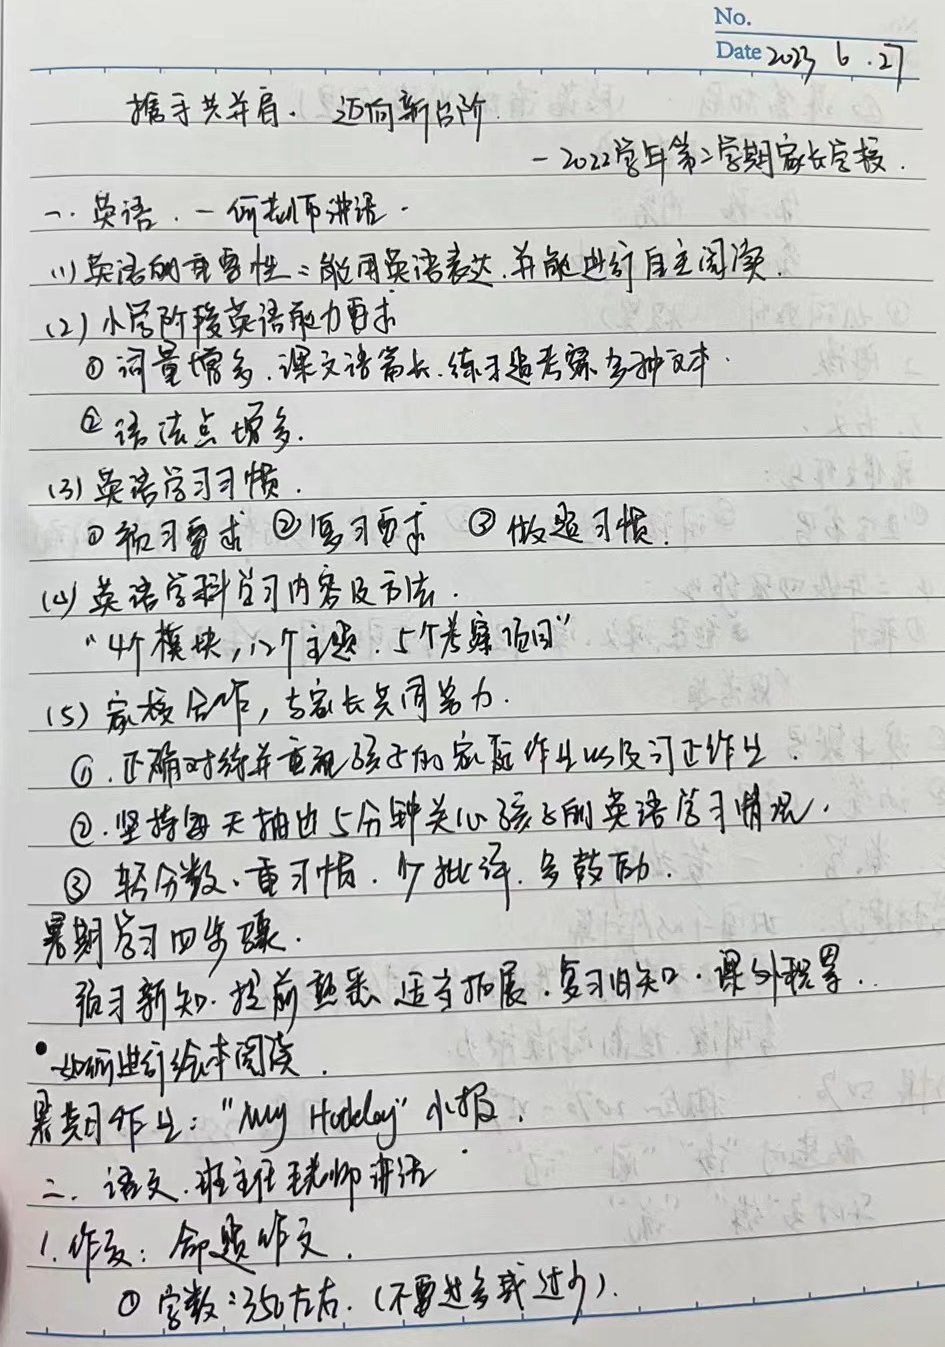 No.
Date 2023 6.27
携手共并肩. 迈向新台阶.
-2022学年第二学期家长学校.
一. 英语. -何老师讲话.
(1) 英语的重要性: 能用英语表达.并能进行自主阅读.
(2) 小学阶段英语能力要求
① 词量增多.课文语篇长.练习题考察多种文本.
② 语法点增多.
(3) 英语学习习惯.
① 预习要求 ② 复习要求 ③ 做题习惯.
(4) 英语学科学习内容及方法.
"4个模块,12个主题.5个考察项目"
(5) 家校合作,与家长共同努力.
①.正确对待并重视孩子的家庭作业以及订正作业.
②.坚持每天抽出5分钟关心孩子的英语学习情况.
③ 轻分数、重习惯.少批评.多鼓励.
暑期学习四步骤.
预习新知.提前熟悉 适当拓展.复习旧知.课外积累..
•如何进行绘本阅读.
暑期作业: "My Holiday" 小报.
二. 语文.班主任王老师讲话
1.作文: 命题作文.
① 字数:350左右.(不要过多或过少).